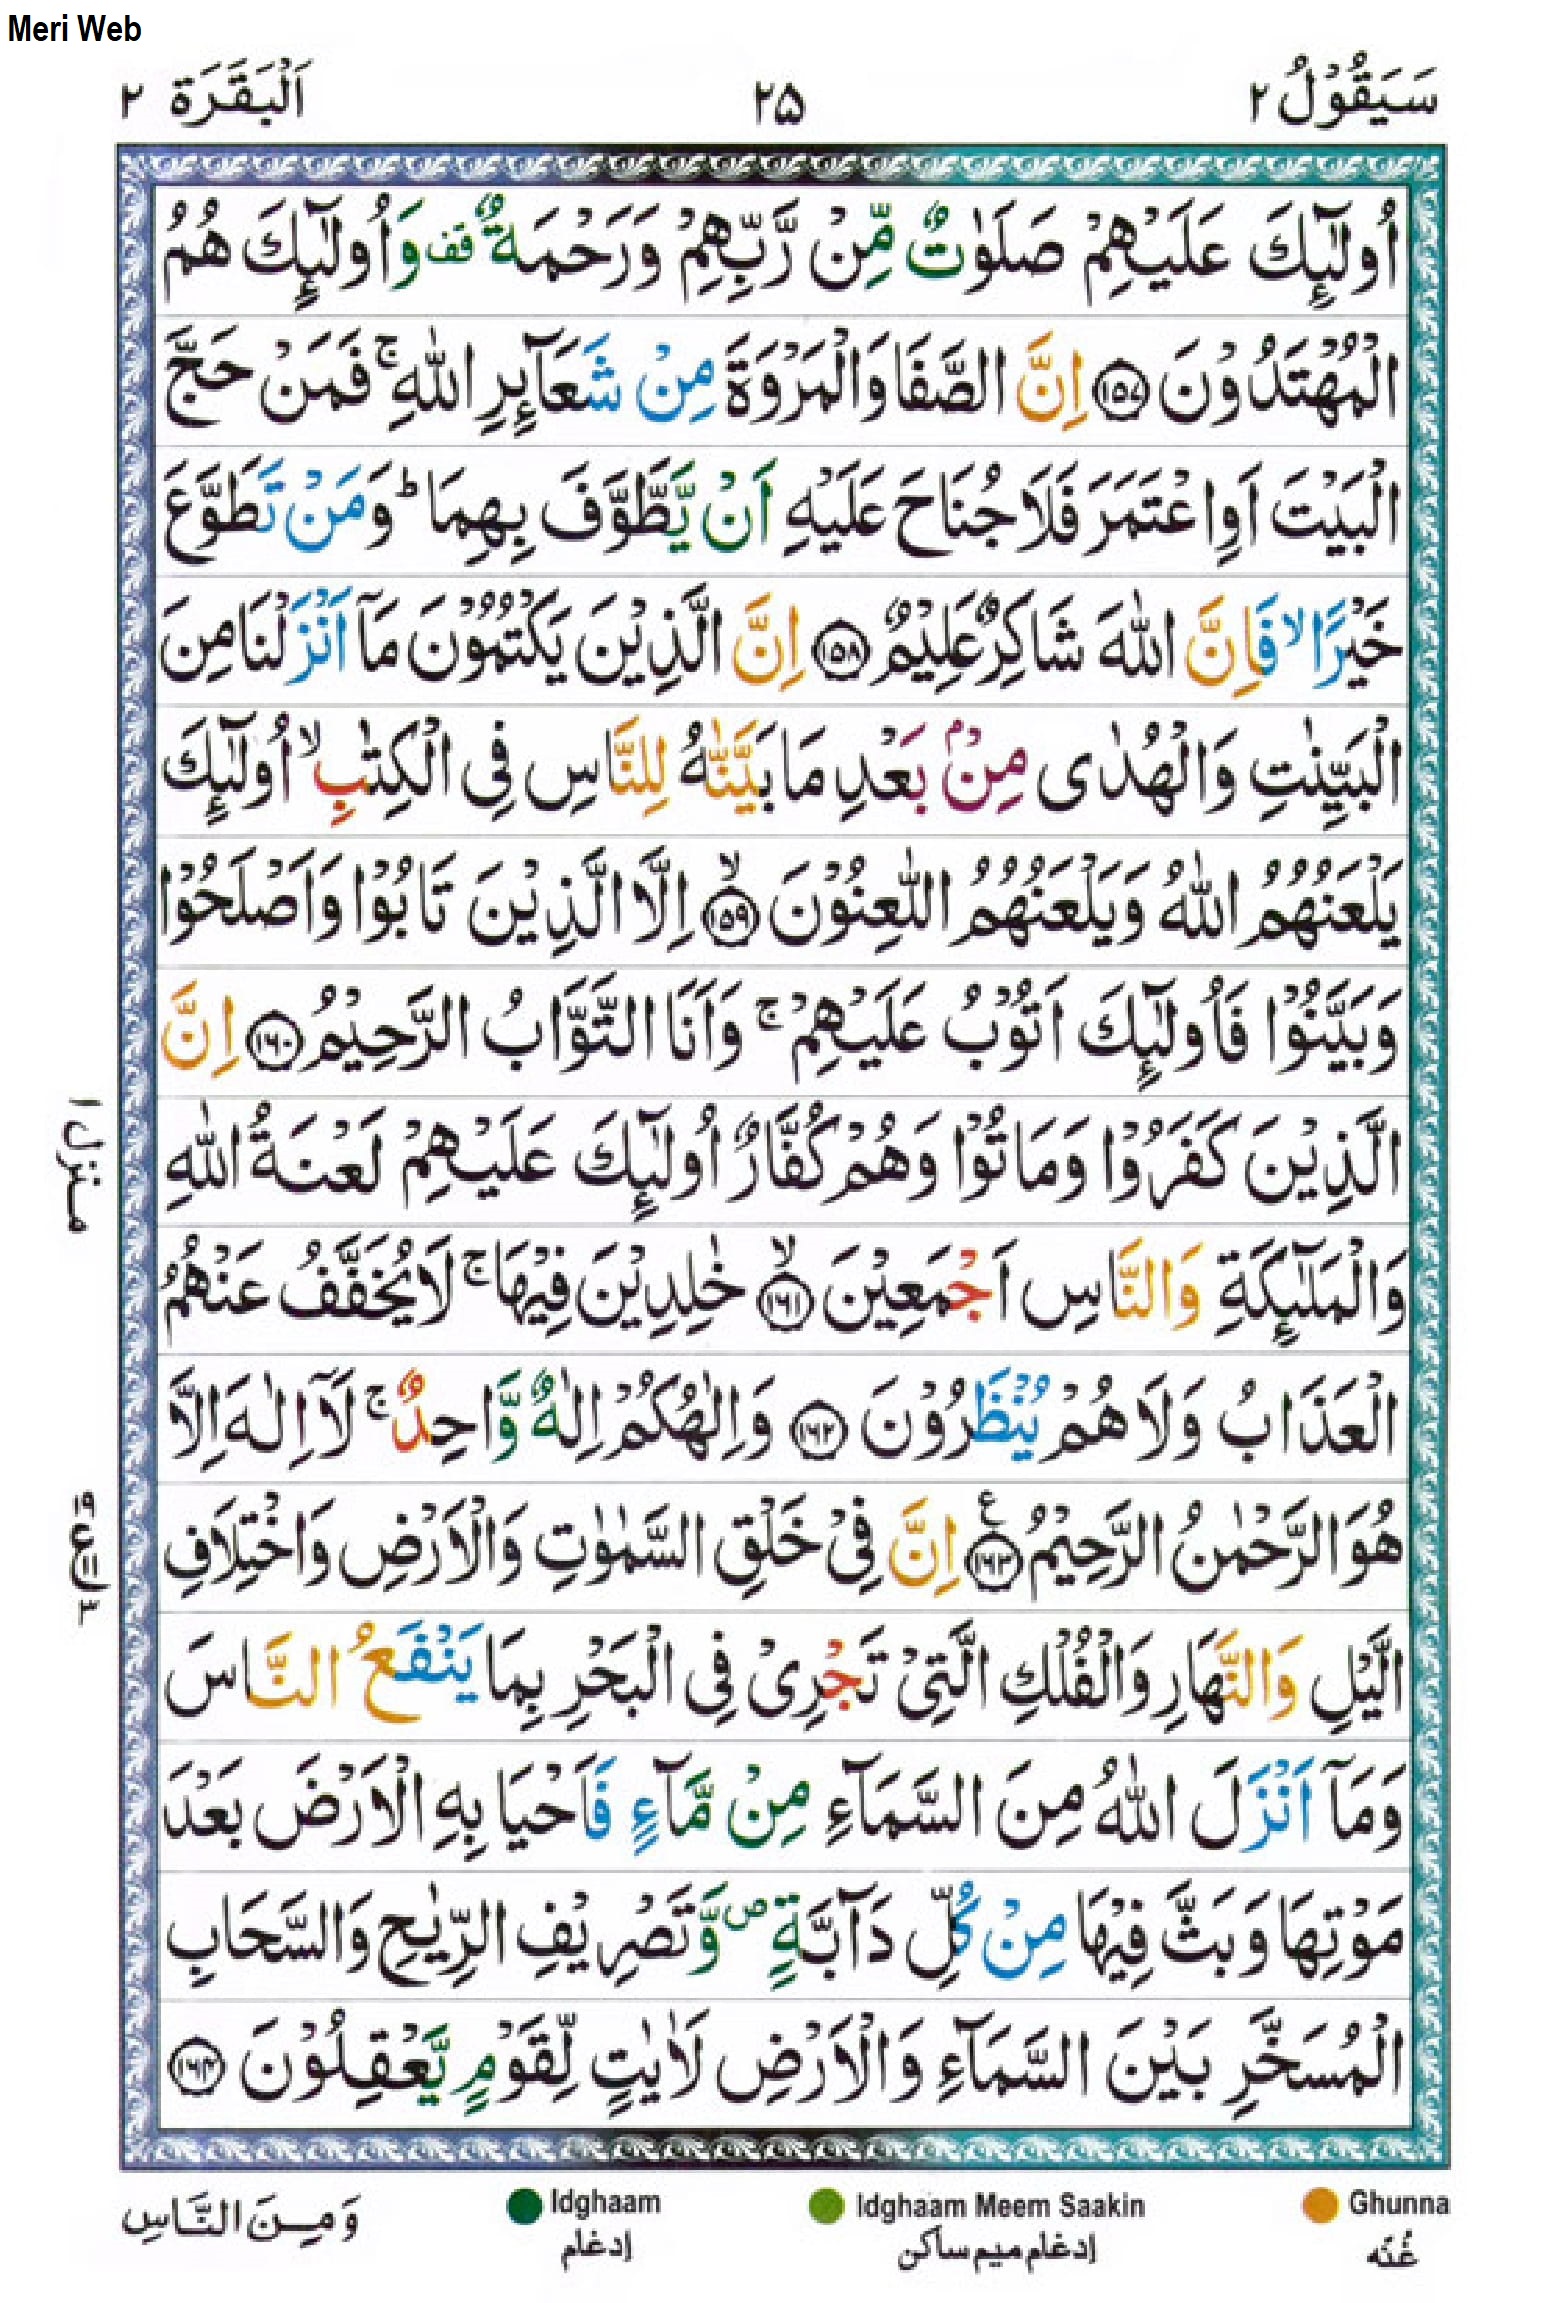 Meri Web
سَيَقُوْلُ ٢ ٢٥ اَلْبَقَرَة ٢
اُولٰٓئِكَ عَلَيْهِمْ صَلَوٰتٌ مِّنْ رَّبِّهِمْ وَرَحْمَةٌ قف وَاُولٰٓئِكَ هُمُ
الْمُهْتَدُوْنَ ١٥٧ اِنَّ الصَّفَا وَالْمَرْوَةَ مِنْ شَعَآئِرِ اللّٰهِ ۚ فَمَنْ حَجَّ
الْبَيْتَ اَوِ اعْتَمَرَ فَلَا جُنَاحَ عَلَيْهِ اَنْ يَّطَّوَّفَ بِهِمَا ؕ وَمَنْ تَطَوَّعَ
خَيْرًا ۙ فَاِنَّ اللّٰهَ شَاكِرٌ عَلِيْمٌ ١٥٨ اِنَّ الَّذِيْنَ يَكْتُمُوْنَ مَآ اَنْزَلْنَا مِنَ
الْبَيِّنٰتِ وَالْهُدٰى مِنْۢ بَعْدِ مَا بَيَّنّٰهُ لِلنَّاسِ فِى الْكِتٰبِ ۙ اُولٰٓئِكَ
يَلْعَنُهُمُ اللّٰهُ وَيَلْعَنُهُمُ اللّٰعِنُوْنَ ۙ ١٥٩ اِلَّا الَّذِيْنَ تَابُوْا وَاَصْلَحُوْا
وَبَيَّنُوْا فَاُولٰٓئِكَ اَتُوْبُ عَلَيْهِمْ ۚ وَاَنَا التَّوَّابُ الرَّحِيْمُ ١٦٠ اِنَّ
الَّذِيْنَ كَفَرُوْا وَمَاتُوْا وَهُمْ كُفَّارٌ اُولٰٓئِكَ عَلَيْهِمْ لَعْنَةُ اللّٰهِ
وَالْمَلٰٓئِكَةِ وَالنَّاسِ اَجْمَعِيْنَ ۙ ١٦١ خٰلِدِيْنَ فِيْهَا ۚ لَا يُخَفَّفُ عَنْهُمُ
الْعَذَابُ وَلَا هُمْ يُنْظَرُوْنَ ١٦٢ وَاِلٰهُكُمْ اِلٰهٌ وَّاحِدٌ ۚ لَآ اِلٰهَ اِلَّا
هُوَ الرَّحْمٰنُ الرَّحِيْمُ ١٦٣ ع اِنَّ فِىْ خَلْقِ السَّمٰوٰتِ وَالْاَرْضِ وَاخْتِلَافِ
الَّيْلِ وَالنَّهَارِ وَالْفُلْكِ الَّتِىْ تَجْرِىْ فِى الْبَحْرِ بِمَا يَنْفَعُ النَّاسَ
وَمَآ اَنْزَلَ اللّٰهُ مِنَ السَّمَآءِ مِنْ مَّآءٍ فَاَحْيَا بِهِ الْاَرْضَ بَعْدَ
مَوْتِهَا وَبَثَّ فِيْهَا مِنْ كُلِّ دَآبَّةٍ ص وَّتَصْرِيْفِ الرِّيٰحِ وَالسَّحَابِ
الْمُسَخَّرِ بَيْنَ السَّمَآءِ وَالْاَرْضِ لَاٰيٰتٍ لِّقَوْمٍ يَّعْقِلُوْنَ ١٦٤
منزل ١
وَمِنَ النَّاسِ
Idghaam Idghaam Meem Saakin Ghunna
إدغام إدغام ميم ساكن غُنّه